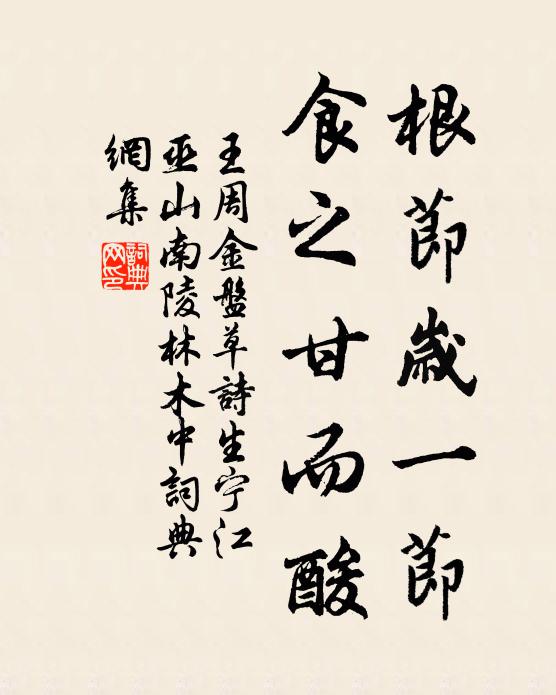 根節歲一節
食之甘而酸
王周金盤草詩生宁江
巫山南陵林木中詞典
網集
詞典
网印